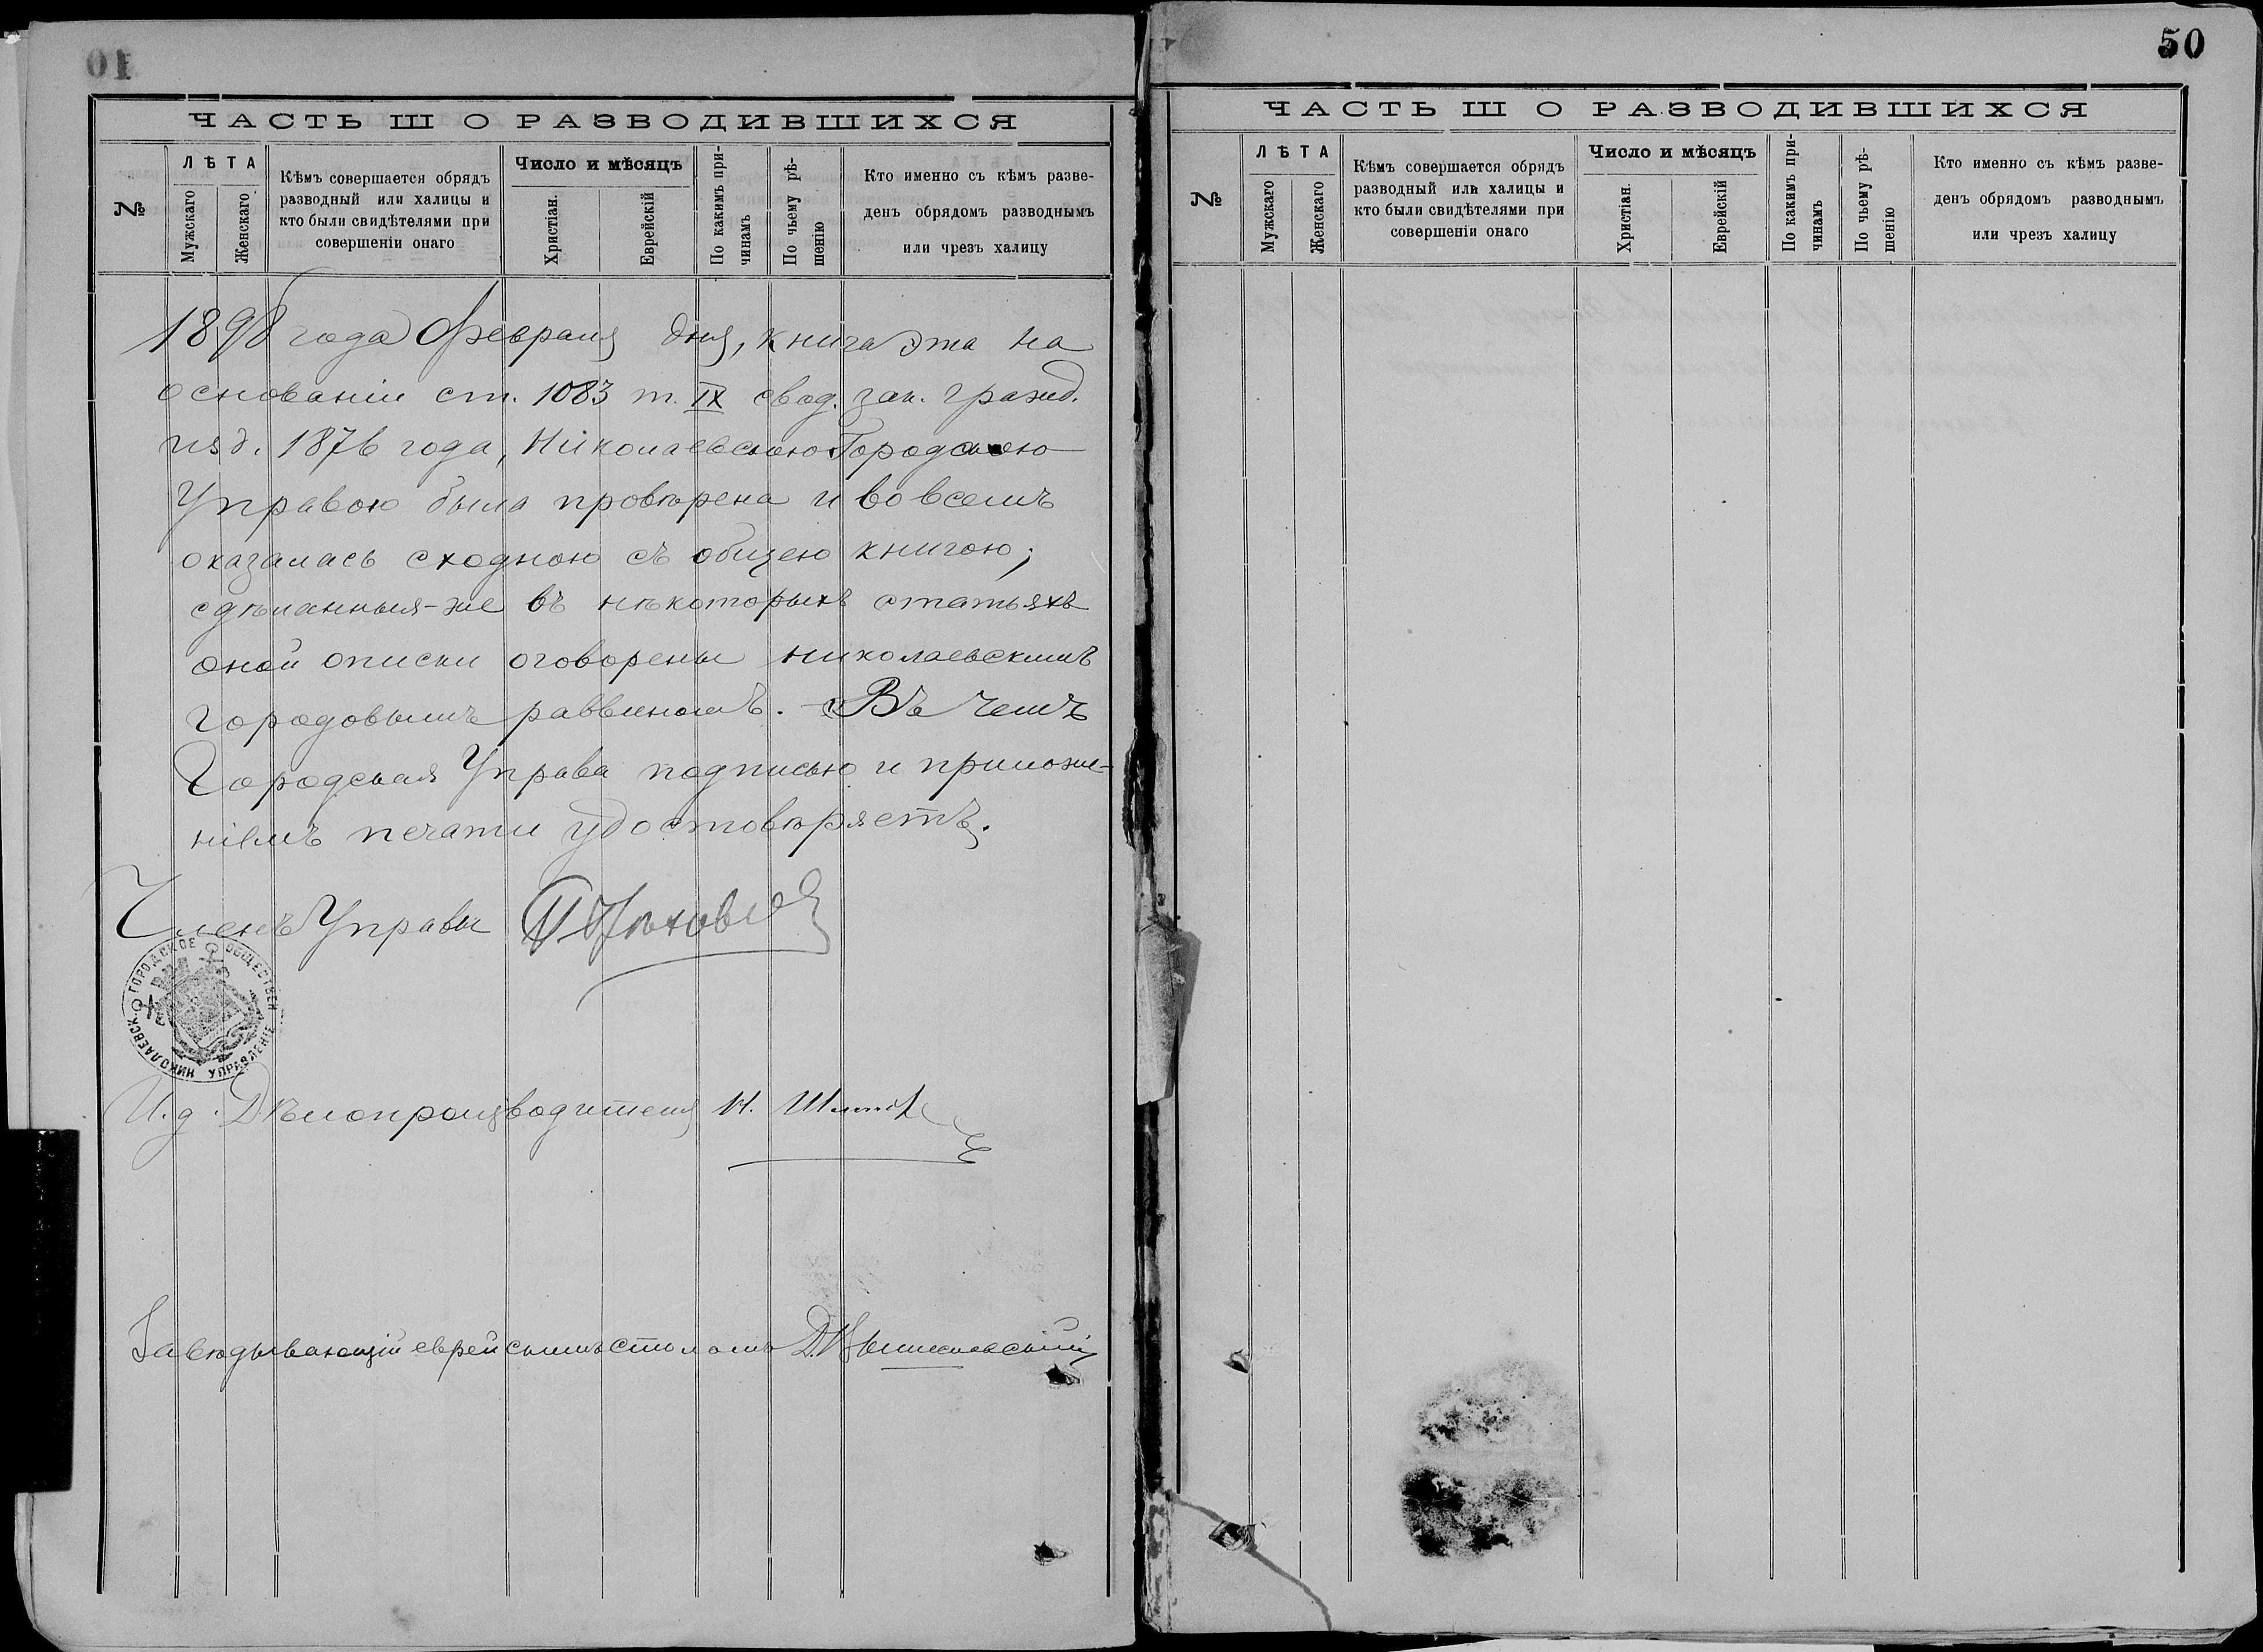 ЧАСТЬ III О РАЗВОДИВШИХСЯ
№
ЛѢТА
Мужскаго
Женскаго
Кѣмъ совершается обрядъ
разводный или халицы и
кто были свидѣтелями при
совершеніи онаго
Число и мѣсяцъ
Христіан.
Еврейскій
По какимъ при-
чинамъ
По чьему рѣ-
шенію
Кто именно съ кѣмъ разве-
денъ обрядомъ разводнымъ
или чрезъ халицу
1898 года Февраля дня, книга эта на
основаніи ст. 1083 т. IX свод. зак. гражд.
изд. 1876 года, Николаевскою Городскою
Управою была провѣрена и во всемъ
оказалась сходною съ общею книгою;
сдѣланныя-же въ нѣкоторыхъ статьяхъ
оной описки оговорены николаевскимъ
городовымъ раввиномъ. - Въ чемъ
Городская Управа подписью и приложе-
ніемъ печати удостовѣряетъ.
Членъ Управы
НИКОЛАЕВСК. ГОРОДСКОЕ ОБЩЕСТВЕН УПРАВЛЕНІЕ
И. д. Дѣлопроизводителя Н.
Завѣдывающій еврейскимъ столомъ Д. Вышневскій
50
ЧАСТЬ III О РАЗВОДИВШИХСЯ
№
ЛѢТА
Мужскаго
Женскаго
Кѣмъ совершается обрядъ
разводный или халицы и
кто были свидѣтелями при
совершеніи онаго
Число и мѣсяцъ
Христіан.
Еврейскій
По какимъ при-
чинамъ
По чьему рѣ-
шенію
Кто именно съ кѣмъ разве-
денъ обрядомъ разводнымъ
или чрезъ халицу